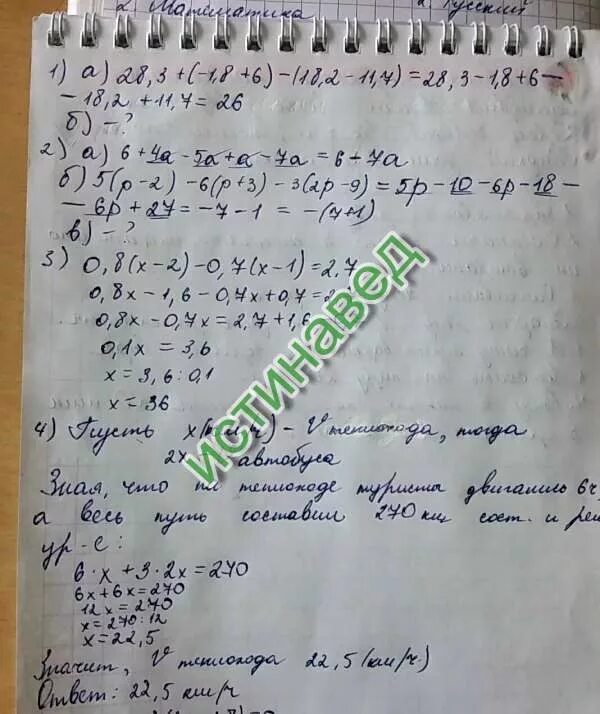 2. Математика
2. Русский
1) а) 28,3+(-1,8+6)-(18,2-11,7)=28,3-1,8+6-
-18,2+11,7=26
б) - ?
2) а) 6+4а-5а+а-7а=6+7а
б) 5(р-2)-6(р+3)-3(2р-9)=5р-10-6р-18-
-6р+27=-7-1=-(7+1)
в) - ?
3) 0,8(х-2)-0,7(х-1)=2,7
0,8х-1,6-0,7х+0,7=2,
0,8х-0,7х=2,7+1,6
0,1х=3,6
х=3,6:0,1
х=36
4) Пусть х(км/ч) - V теплохода, тогда
2х автобуса
Зная, что на теплоходе туристы двигались 6ч,
а весь путь составил 270 км, сост. и реш
ур-е:
6·х+3·2х=270
6х+6х=270
12х=270
х=270:12
х=22,5
Значит, V теплохода 22,5(км/ч)
Ответ: 22,5 км/ч
истинавед